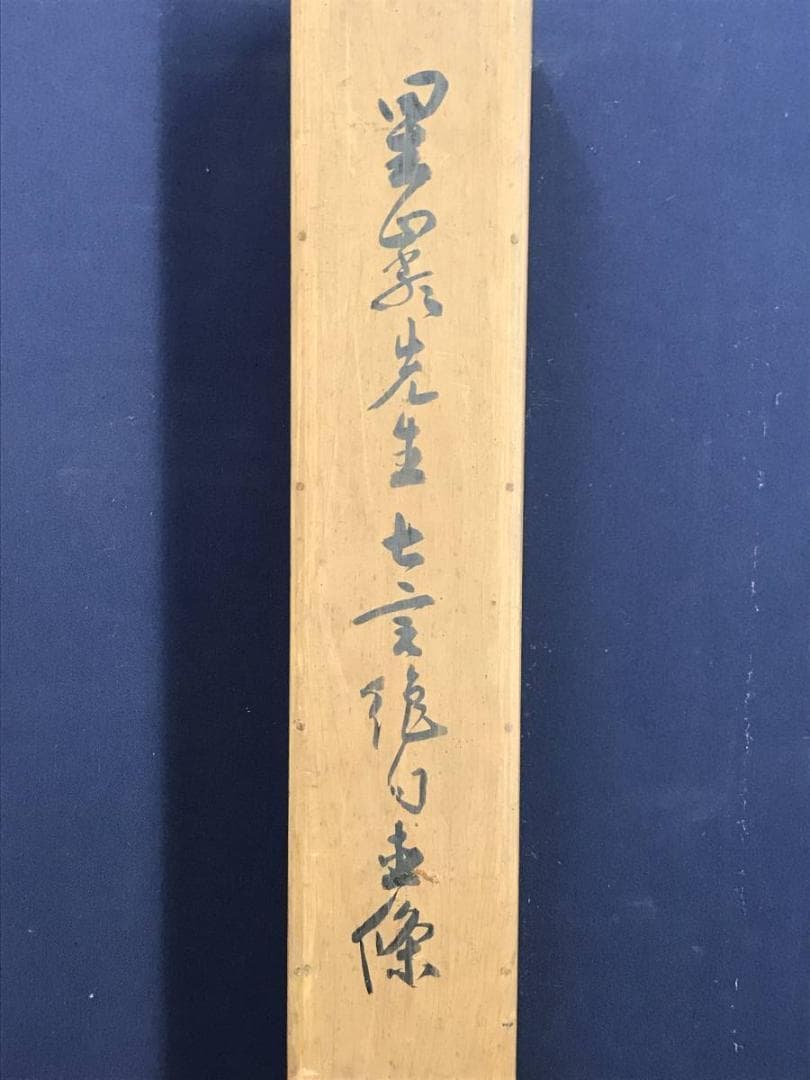 星巖先生七言絶句壹條